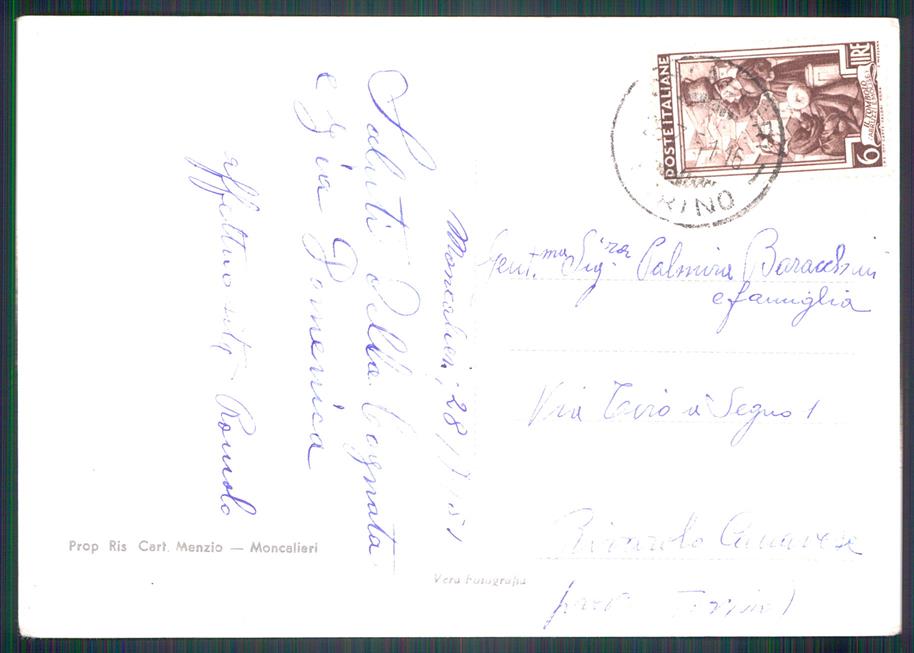 Moncalieri, 28/7/51
Saluti dalla Cognata
e zia Domenica
Romolo
Prop Ris Cart. Menzio — Moncalieri
Vera Fotografia
POSTE ITALIANE
LIRE
6
RINO
Gent.ma Sig.ra Palmira Baracchini
e famiglia
Via Tiro a Segno 1
Rivarolo Canavese
Torino)